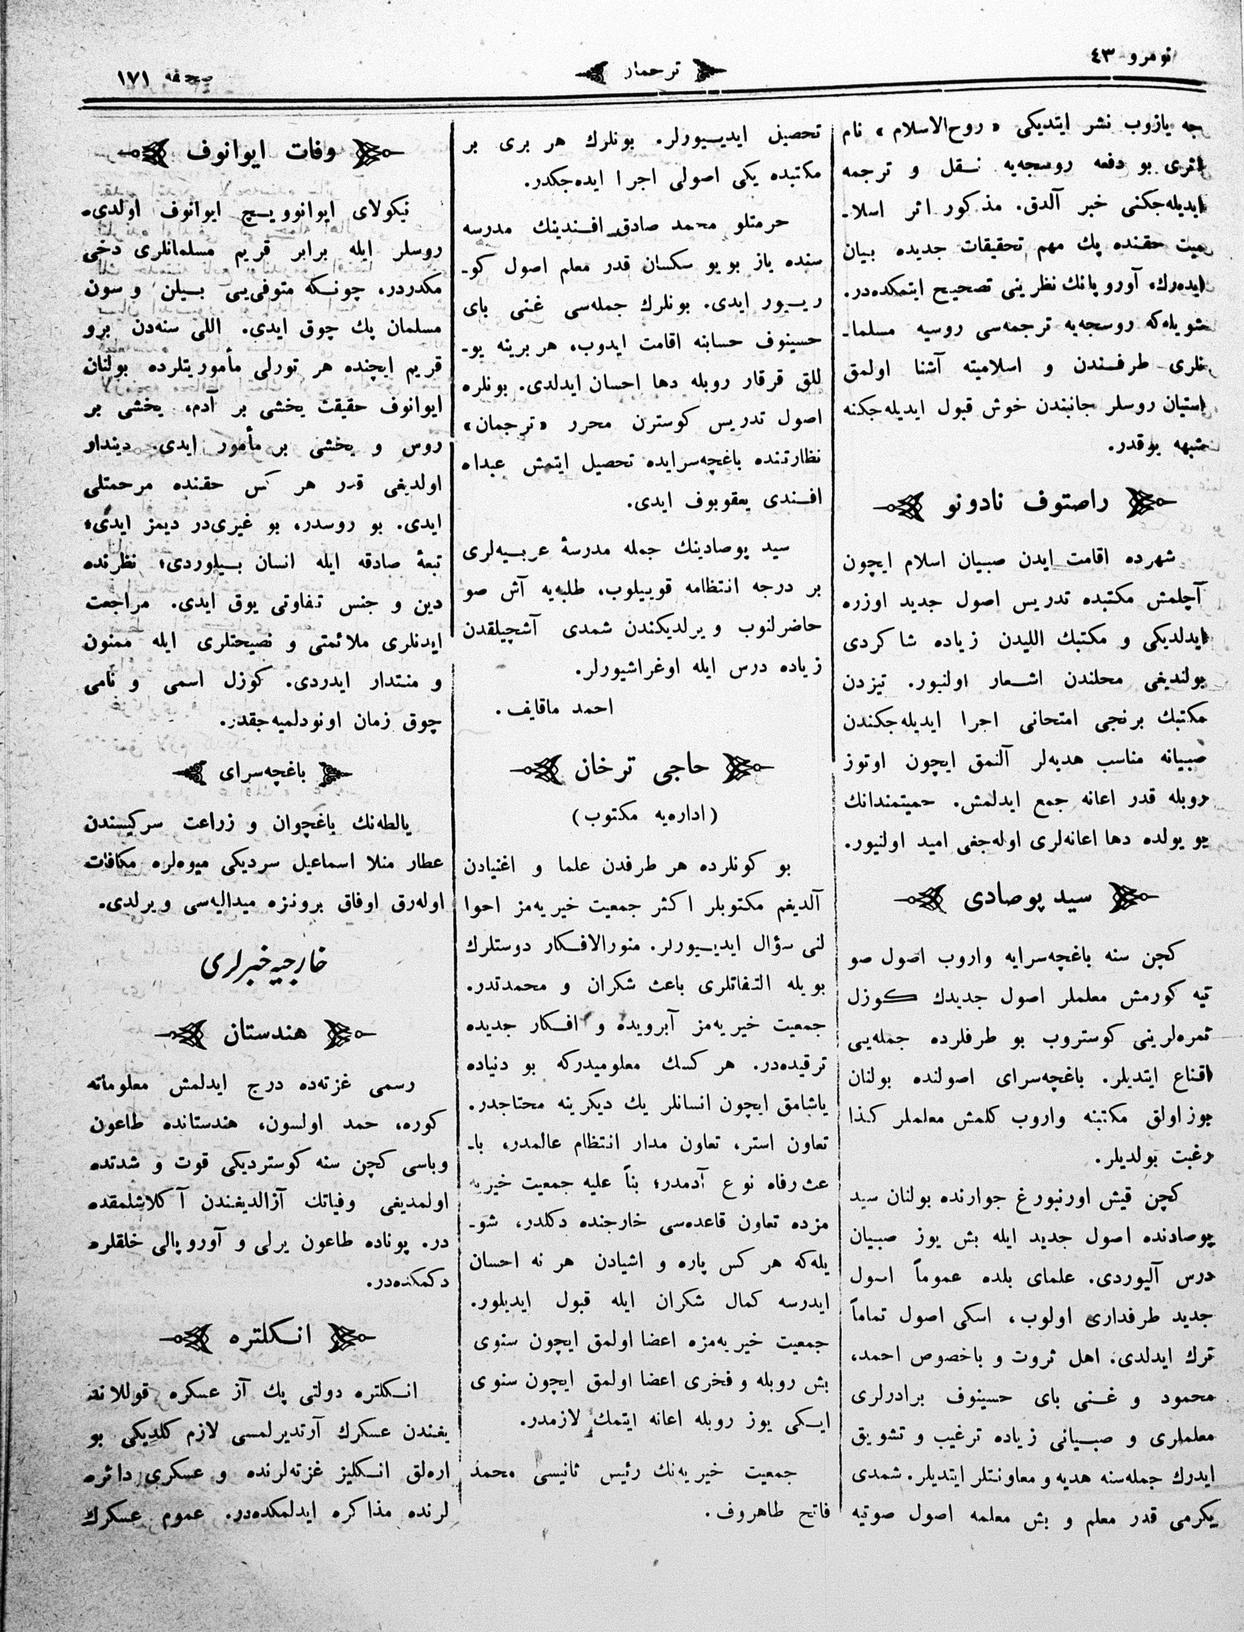 نومرو ٤٣
ترجمان
صحفه ١٧١
جه يازوب نشر ايتديكى «روح‌الاسلام» نام
اثرى بو دفعه روسجه‌يه نقل و ترجمه
ايديله‌جكنى خبر آلدق. مذكور اثر اسلا-
ميت حقنده پك مهم تحقيقات جديده بيان
ايده‌رك، آوروپانك نظرينى تصحيح ايتمكده‌در.
شويله‌كه روسجه‌يه ترجمه‌سى روسيه مسلما-
نلرى طرفندن و اسلاميته آشنا اولمق
استيان روسلر جانبندن خوش قبول ايديله‌جكنه
شبهه يوقدر.
راصتوف نادونو
شهرده اقامت ايدن صبيان اسلام ايچون
آچلمش مكتبده تدريس اصول جديد اوزره
ايدلديكى و مكتبك الليدن زياده شاكردى
بولنديغى محلندن اشعار اولنيور. تيزدن
مكتبك برنجى امتحانى اجرا ايديله‌جكندن
صبيانه مناسب هديه‌لر آلنمق ايچون اوتوز
روبله قدر اعانه جمع ايدلمش. حميتمندانك
بو يولده دها اعانه‌لرى اوله‌جغى اميد اولنيور.
سيد پوصادى
كچن سنه باغچه‌سرايه واروب اصول صو
تيه كورمش معلملر اصول جديدك كوزل
ثمره‌لرينى كوستروب بو طرفلرده جمله‌يى
اقناع ايتديلر. باغچه‌سراى اصولنده بولنان
بوزاولق مكتبنه واروب كلمش معلملر كذا
رغبت بولديلر.
كچن قيش اورنبورغ جوارنده بولنان سيد
پوصادنده اصول جديد ايله بش يوز صبيان
درس آليوردى. علماى بلده عموماً اصول
جديد طرفدارى اولوب، اسكى اصول تماماً
ترك ايدلدى. اهل ثروت و باخصوص احمد،
محمود و غنى باى حسينوف برادرلرى
معلملرى و صبيانى زياده ترغيب و تشويق
ايدرك جمله‌سنه هديه و معاونتلر ايتديلر. شمدى
يكرمى قدر معلم و بش معلمه اصول صوتيه
تحصيل ايديیورلر. بونلرك هر برى بر
مكتبده يكى اصولى اجرا ايده‌جكدر.
حرمتلو محمد صادق افندينك مدرسه
سنده ياز بويو سكسان قدر معلم اصول كو-
ريیور ايدى. بونلرك جمله‌سى غنى باى
حسينوف حسابنه اقامت ايدوب، هر برينه يو-
للق قرقار روبله دها احسان ايدلدى. بونلره
اصول تدريس كوسترن محرر «ترجمان»
نظارتنده باغچه‌سرايده تحصيل ايتمش عبدالله
افندى يعقوبوف ايدى.
سيد پوصادينك جمله مدرسهٔ عربيه‌لرى
بر درجه انتظامه قويیلوب، طلبه‌يه آش صو
حاضرلنوب ويرلديكندن شمدى آشچيلقدن
زياده درس ايله اوغراشيورلر.
احمد ماقايف.
حاجى ترخان
(اداره‌يه مكتوب)
بو كونلرده هر طرفدن علما و اغنيادن
آلديغم مكتوبلر اكثر جمعيت خيريه‌مز احوا
لنى سؤال ايديیورلر. منورالافكار دوستلرك
بويله التفاتلرى باعث شكران و محمدتدر.
جمعيت خيريه‌مز آبرويده و افكار جديده
ترقيده‌در. هر كسك معلوميدركه بو دنياده
ياشامق ايچون انسانلر يك ديكرينه محتاجدر.
تعاون استر، تعاون مدار انتظام عالمدر، با-
عث رفاه نوع آدمدر؛ بناً عليه جمعيت خيريه
مزده تعاون قاعده‌سى خارجنده دكلدر، شو-
يله‌كه هر كس پاره و اشيادن هر نه احسان
ايدرسه كمال شكران ايله قبول ايديلور.
جمعيت خيريه‌مزه اعضا اولمق ايچون سنوى
بش روبله و فخرى اعضا اولمق ايچون سنوى
ايكى يوز روبله اعانه ايتمك لازمدر.
جمعيت خيريه‌نك رئيس ثانيسى محمد
فاتح طاهروف.
وفات ايوانوف
نيكولاى ايوانوويچ ايوانوف اولدى-
روسلر ايله برابر قريم مسلمانلرى دخى
مكدردر، چونكه متوفى‌يى بيلن و سون
مسلمان پك چوق ايدى. اللى سنه‌دن برو
قريم ايچنده هر تورلى مأموريتلرده بولنان
ايوانوف حقيقت يخشى بر آدم، يخشى بر
روس و يخشى بر مأمور ايدى. ديندار
اولديغى قدر هر كس حقنده مرحمتلى
ايدى. بو روسدر، بو غيرى‌در ديمز ايدى؛
تبعهٔ صادقه ايله انسان بيلوردى؛ نظرنده
دين و جنس تفاوتى يوق ايدى. مراجعت
ايدنلرى ملائمتى و نصيحتلرى ايله ممنون
و منتدار ايدردى. كوزل اسمى و نامى
چوق زمان اونودلميه‌جقدر.
باغچه‌سراى
يالطه‌نك باغچوان و زراعت سركيسندن
عطار منلا اسماعيل سرديكى ميوه‌لره مكافات
اوله‌رق اوفاق برونزه ميداليه‌سى ويرلدى.
خارجيه خبرلرى
هندستان
رسمى غزته‌ده درج ايدلمش معلوماته
كوره، حمد اولسون، هندستانده طاعون
وباسى كچن سنه كوسترديكى قوت و شدتده
اولمديغى وفياتك آزالديغندن آكلاشلمقده
در. پوناده طاعون يرلى و آوروپالى خلقلره
دكمكده‌در.
انكلتره
انكلتره دولتى پك آز عسكره قوللانه
يغندن عسكرك آرتديرلمسى لازم كلديكى بو
ارەلق انكليز غزته‌لرنده و عسكرى دائره
لرنده مذاكره ايدلمكده‌در. عموم عسكرك